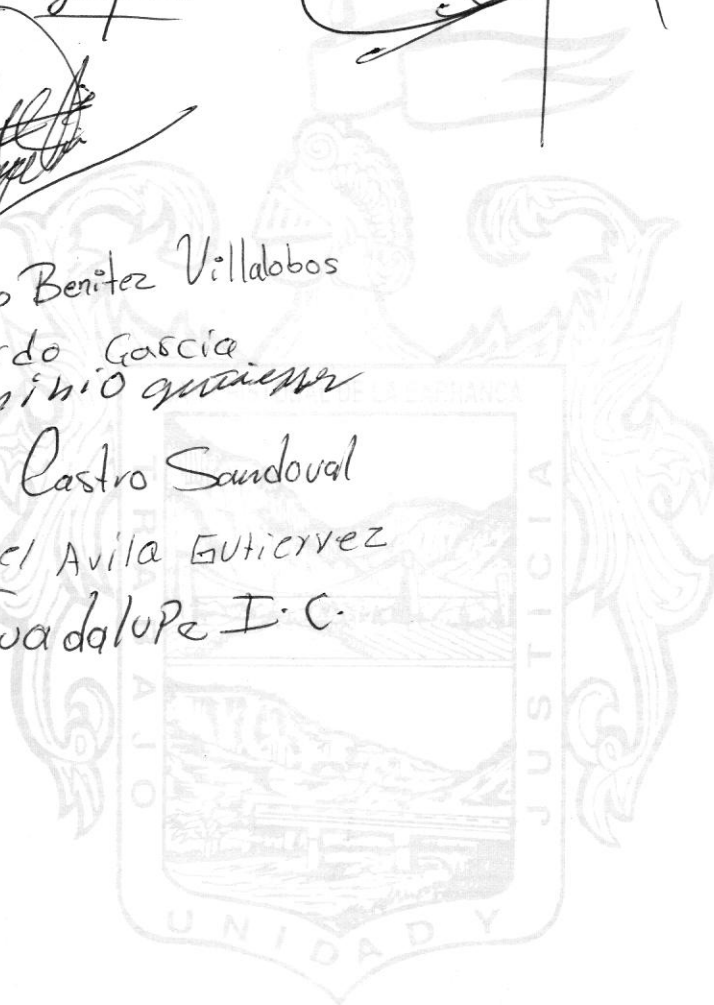 o Benitez Villalobos
rdo Garcia
inio gutierrez
Castro Sandoval
el Avila Gutierrez
uadalupe I. C.
DE LA BARRANCA
TRABAJO
JUSTICIA
UNIDAD Y